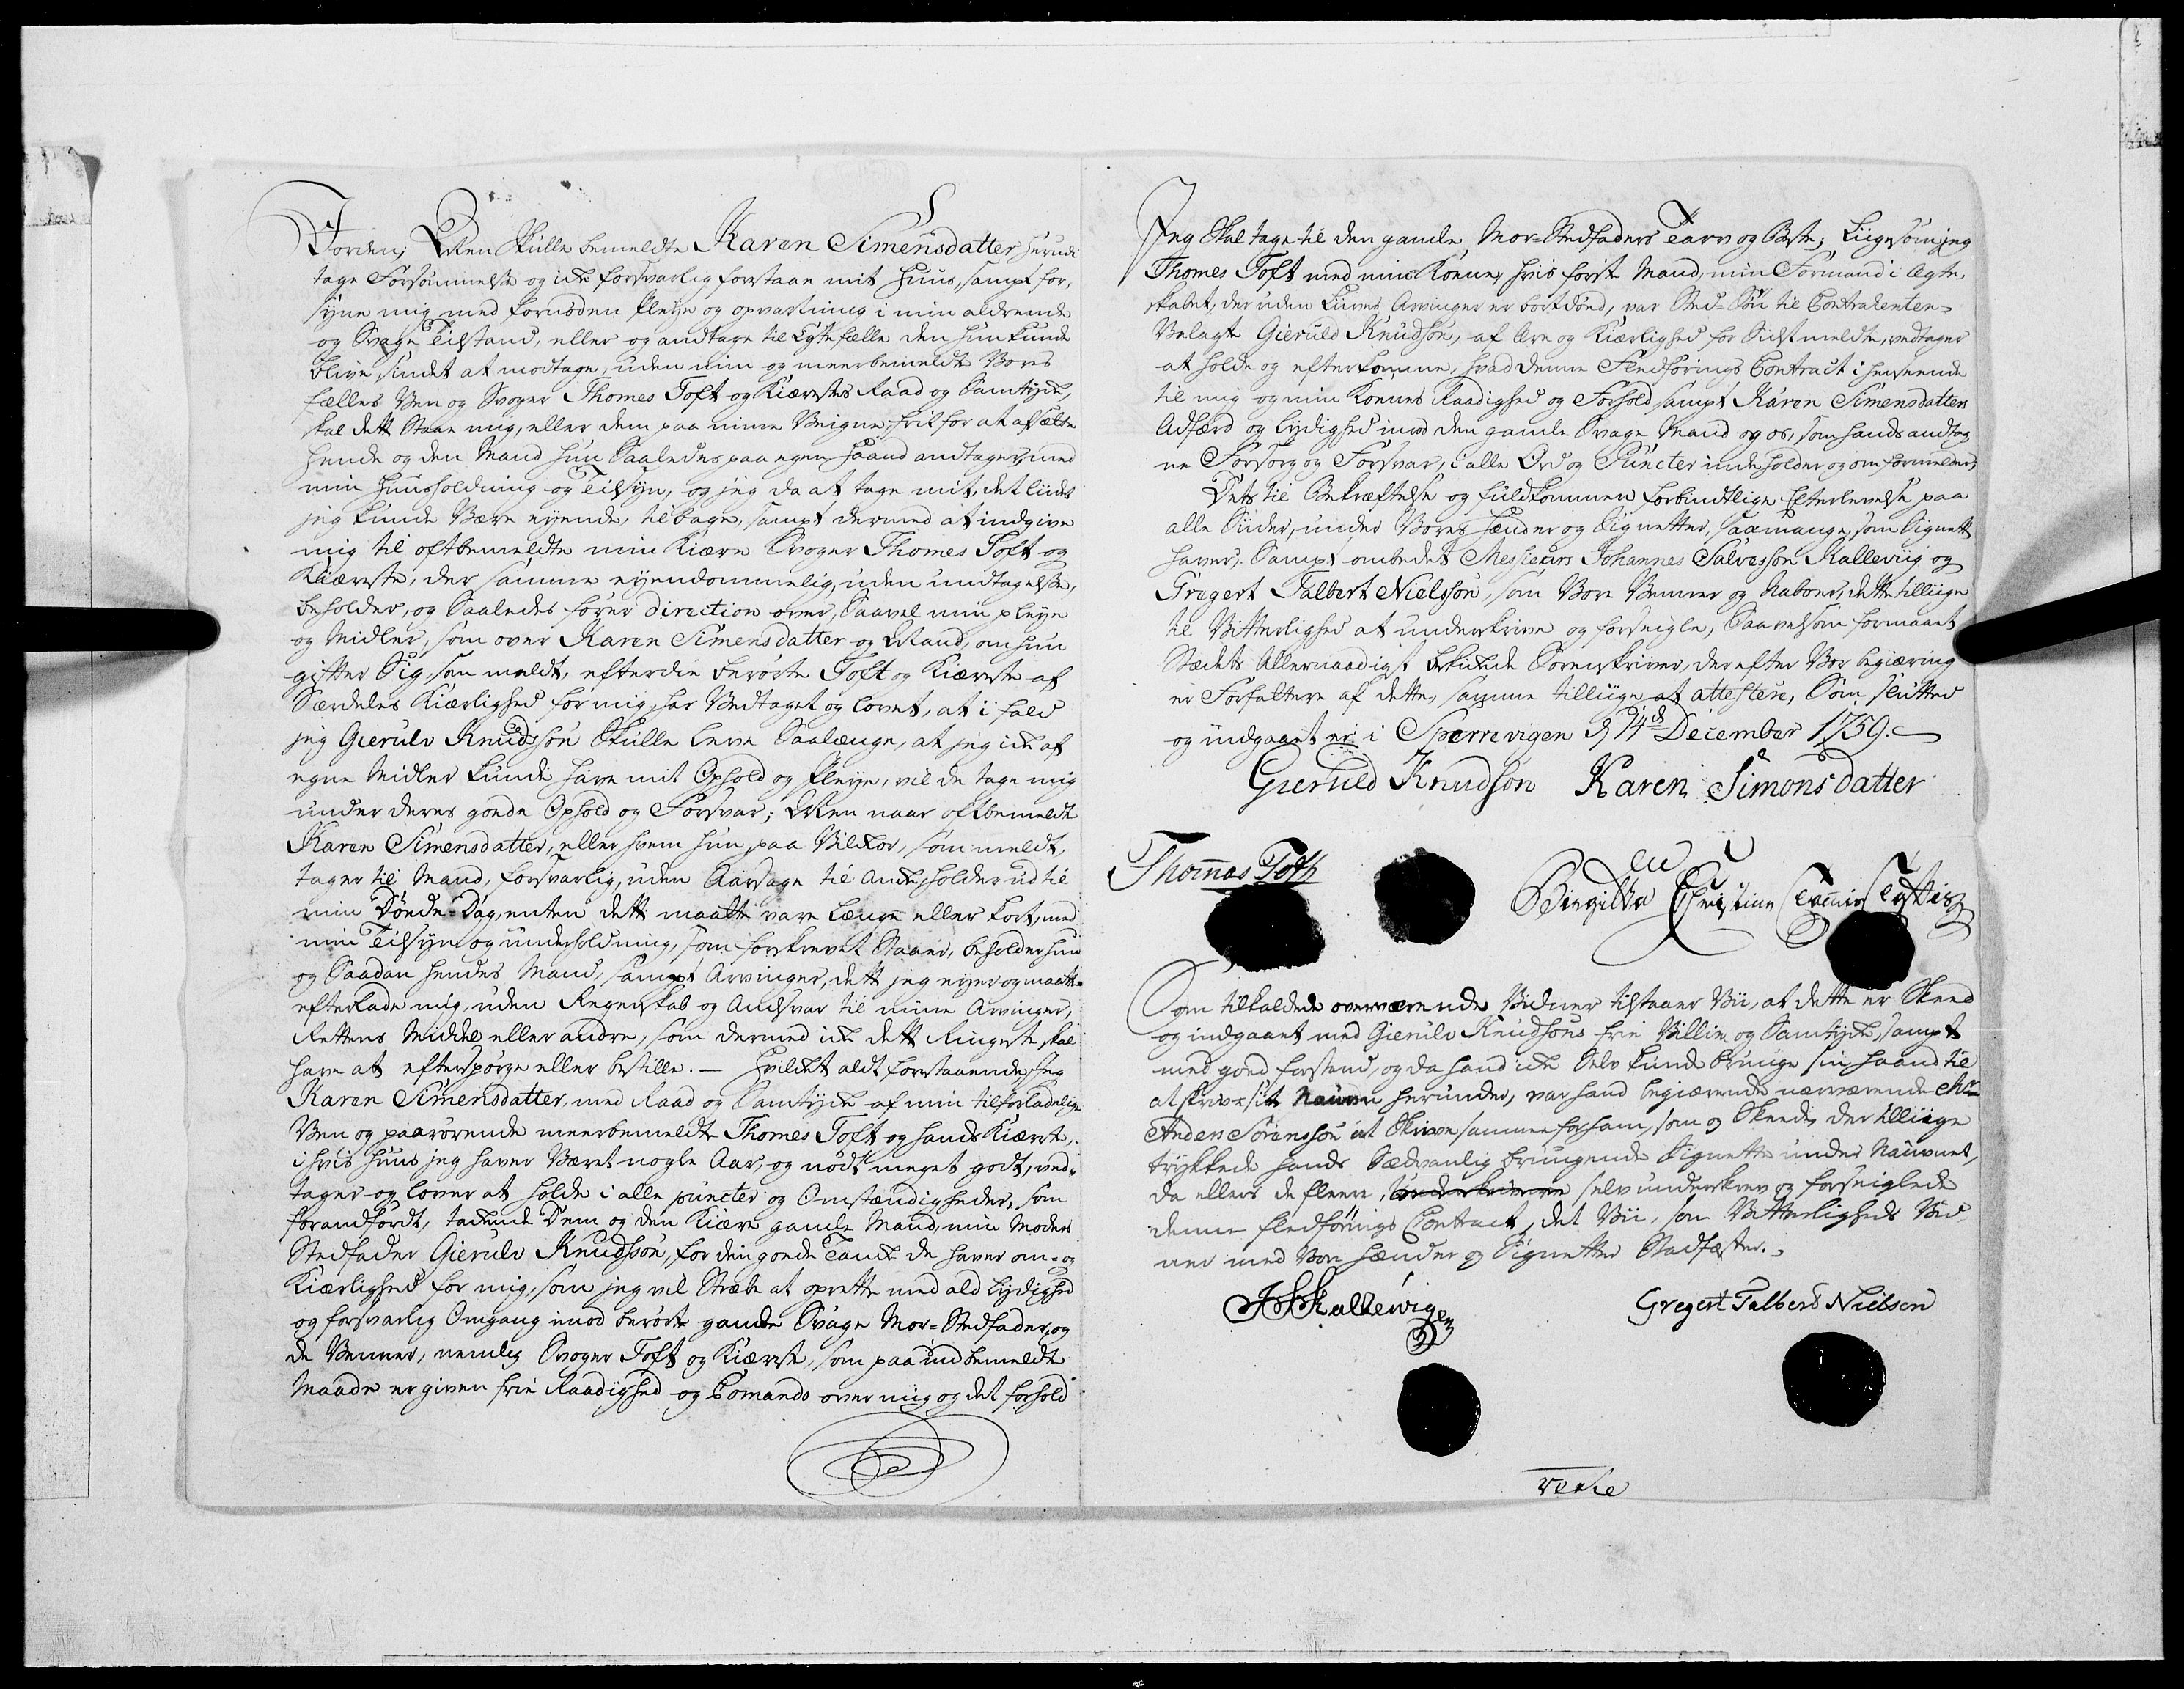 Jorden; Men skulle bemeldte Karen Simensdatter herudi
tage Forsømmelse og icke forsvarlig forestaae mit Huus, sampt for,
syne mig med fornøden Pleye og opvartning i min aldrende
og Svage Tilstand, eller og andtage til Egtefælle den hun kunde
blive sindet at modtage, uden min og meerbemeldte Vores
fælles Ven og Svoger Thomes Toft og Kiærestes Raad og Samtycke,
skal dette staae mig, eller dem paa mine Veigne, frit for at afskælte
hende og den Mand hun saaledes paa egen Haand andtager, med
min Huusholdning og Tilsyn, og jeg da at tage mit, det liidet
jeg kunde være eyende, tilbage, sampt dermed at indgive
mig til oftbemeldte min Kiære Svoger Thomes Toft og
Kiæreste, der samme eyendommelig, uden undtagelse,
beholder, og saaledes fører direction over, saavel min pleye
og Midler, som over Karen Simensdatter og Mand, om hun
gifter Sig, som meldt, efterdie berørte Toft og Kiæreste af
Særdeles Kiærlighed for mig, har Vedtaget og lovet, at i fald
jeg Gierulv Knudssøn skulle leve saalænge, at jeg icke af
egne Midler kunde have mit Ophold og Pleye, vil de tage mig
under deres goede Ophold og Forsvar; Men naar oftbemeldte
Karen Simensdatter, eller hvem hun, paa Vilckor, som meldt,
tager til Mand, forsvarlig, uden Aarsage til Ancke, holder ud til
min Døende-Dag, enten dette maatte vare længe eller kort, med
min Tilsyn og underholdning, som forskrevet staaer, beholder hun
og Saadan hendes Mand, sampt Arvinger, dette jeg eyer og maatte
efterlade mig, uden Regenskab og Andsvar til mine Arvinger,
Rettens Middel eller andre, som dermed icke dette Ringeste skal
have at efterspørge eller bestille. — Hvilcket aldt forestaaende, Jeg
Karen Simensdatter, med Raad og Samtycke af min tilforladelige
Ven og paarørende meerbemeldte Thomes Toft og hands Kiæreste,
i hvis Huus jeg haver Været nogle Aar, og nødt meget godt, ved-
tager og lover at holde i alle puncter og Omstændigheder, som
forandført, tackende Dem og den Kiære gamle Mand, min Moders
Stedfader Gierulv Knudssøn, for den goede Tancke de haver om- og
Kiærlighed for mig, som jeg vil Stræbe at oprette med ald Lydighed
og forsvarlig Omgang imod berørte gamle Svage Mor-Stedfader, og
de Venner, nemlig Svoger Toft og Kiæreste, som paa indbemeldte
Maade er given frie Raadighed og Comando over mig og det forhold
Jeg skal tage til den gamle Mor-Stedfaders Tarv og Beste; Liigesom jeg
Thomes Toft med min Konne, hvis første Mand, min Formand i Ægte,
skabet, der uden Liivs Arvinger er bortdød, var Sted-Søn til Contrahenten-
Velagte Gieruld Knudssøn, af Ære og Kiærlighed for Sidstmeldte, vedtager
at holde og efterkomme, hvad denne Fledførings Contract i henseende
til mig og min Konnes Raadighed og Forhold sampt Karen Simensdatters
Adfærd og Lydighed imod den gamle Svage Mand og os, som hands andtag
ne Forsorg og Forsvar, i alle Ord og Puncter indeholder og om formelder,
Dets til Bekræftelse og fuldkommen forbindtlige Efterlevelse paa
alle Siider, under Vores Hænder og Signetter, saamange, som Signett
haver, Sampt ombedet Messieurs Johannes Salvessøn Kalleviig og
Gregert Falbert Nielssøn, som Vore Venner og Naboer, dette tilliige
til Vitterlighed at underskrive og forseigle, Saavelsom formaaet
Stedets Allernaadigst beskickede Sorenskriver, der efter Vor begiæring
er Forfattere af dette, samme tilliige at attestere, Som sluttet
og indgaaet er i Sperrevigen d 14de December 1759.
Gieruld Knudsøn Karen Simonsdatter
Thomas Toft
Christine
Som tilkaldede overværende Vidner tilstaaer Vii, at dette er Skeed
og indgaaet med Gierulv Knudssøns frie Villie og Samtycke, sampt
med goed forstand, og da hand icke Selv kunde bringe sin Haand til
at skrive sit Naun herunder, var hand begiærende nærværende Mr
Anders Sørenssøn at skrive samme for ham, som og Skeede, der tilliige
trykkede hands Sædvanlig brugende Signette under Naunet,
da ellers de fleere, selv underskrev og forseiglede
denne fledførings Contract, det Vii, som Vitterligheds Vid
ner med Vore Hænder og Signetter Stadfæster.
JSKallewigen
Gregert Falbert Nielsen
verte